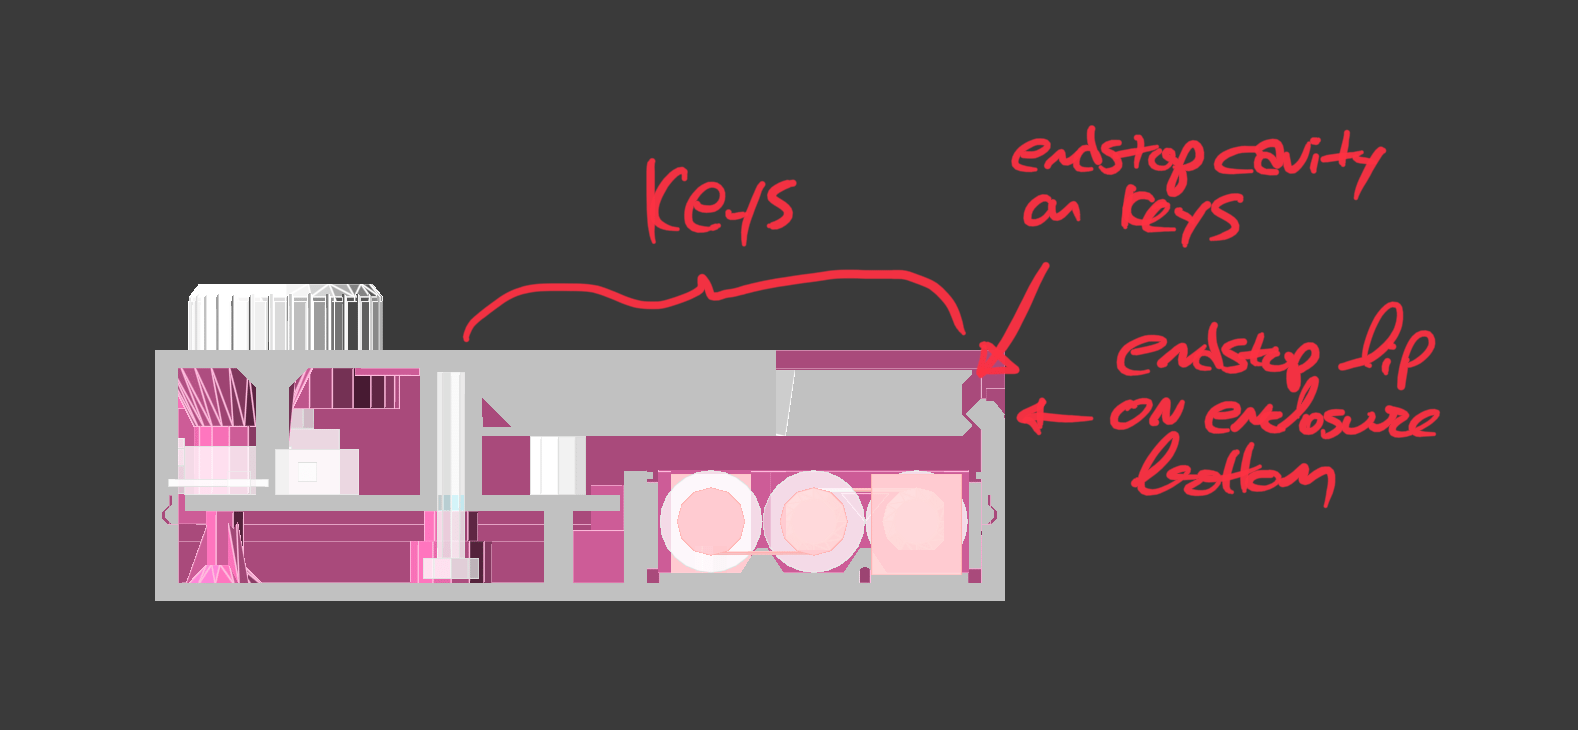 Keys
endstop cavity
on keys
endstop lip
on enclosure
bottom